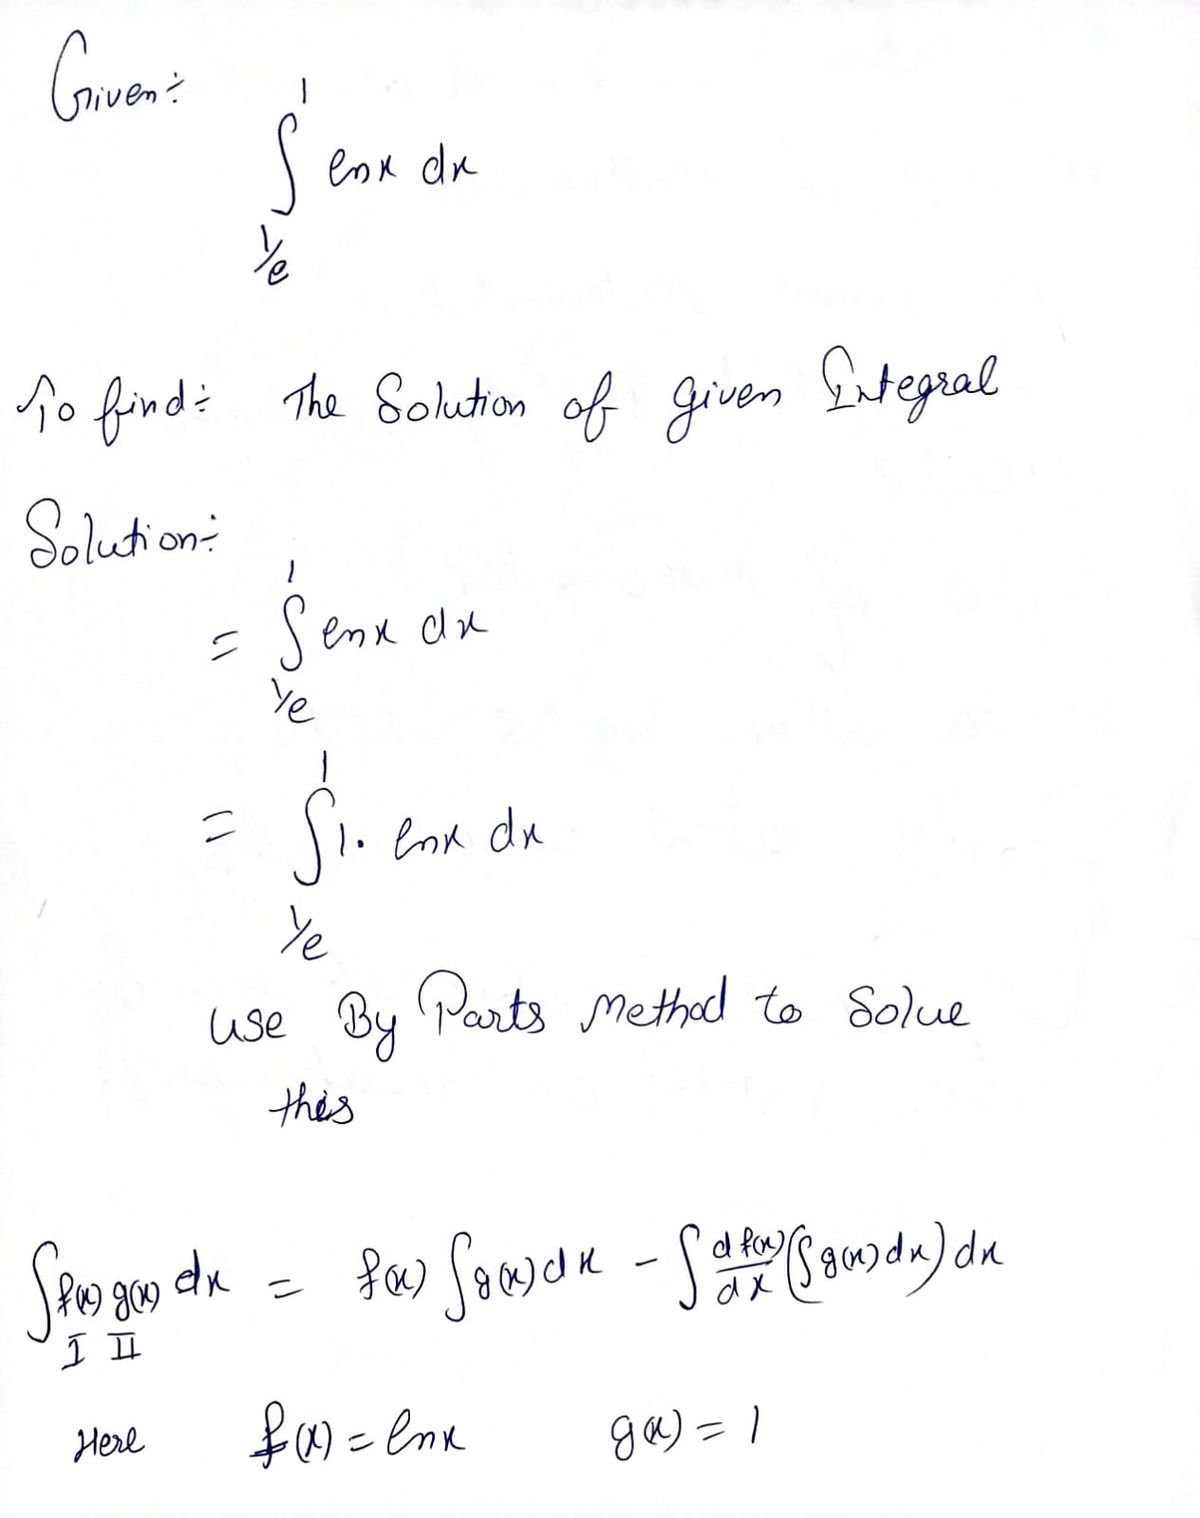 Given÷
∫_{1/e}^{1} lnx dx
To find÷ The Solution of given Integral
Solution÷
= ∫_{1/e}^{1} lnx dx
= ∫_{1/e}^{1} 1. lnx dx
use By Parts Method to Solve
this
∫f(x) g(x) dx = f(x) ∫g(x)dx - ∫ df(x)/dx (∫g(x)dx) dx
I II
Here f(x) = lnx g(x) = 1